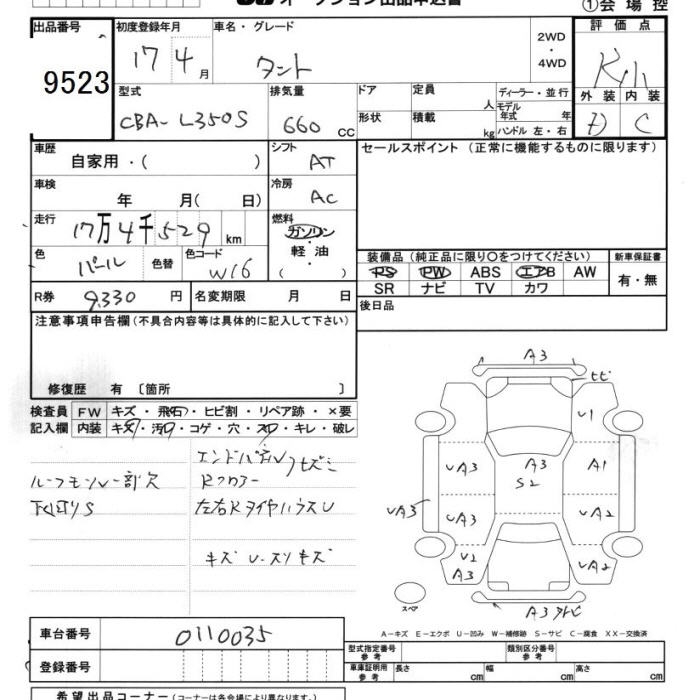 オークション出品申込書
①会場控
出品番号 9523
初度登録年月 17 4月
車名・グレード タント
2WD
・
4WD
評価点
外装 内装
D C
型式 CBA-L350S
排気量 660 cc
ドア
定員 人
ディーラー・並行
形状
積載 kg
モデル年式 年
ハンドル 左・右
車歴 自家用・( )
シフト AT
セールスポイント (正常に機能するものに限ります)
車検 年 月( 日)
冷房 AC
走行 17万4千529km
燃料 ガソリン・軽油 ( )
色 パール 色替
色コード W16
装備品 (純正品に限り○をつけてください)
新車保証書
PS PW ABS エアB AW
有・無
SR ナビ TV カワ
R券 9,330 円
名変期限 月 日
後日品
注意事項申告欄 (不具合内容等は具体的に記入して下さい)
修復歴 有 〔箇所 〕
検査員 FW キズ・飛石・ヒビ割・リペア跡・×要
記入欄 内装 キズ・汚レ・コゲ・穴・スレ・キレ・破レ
エンドパネル
ルーフモール一部欠
Rフロアー
下廻りS
左右RタイヤハウスU
キズ U・スリキズ
A3
ヒビ
U1
UA3
A3
S2
A1
UA3
UA3
UA2
U2
A3
UA2
A3ワレヒビ
スペア
A-キズ E-エクボ U-凹み W-補修跡 S-サビ C-腐食 XX-交換済
車台番号 0110035
登録番号
型式指定番号 参考
類別区分番号 参考
車庫証明用 参考
長さ cm
幅 cm
高さ cm
希望出品コーナー